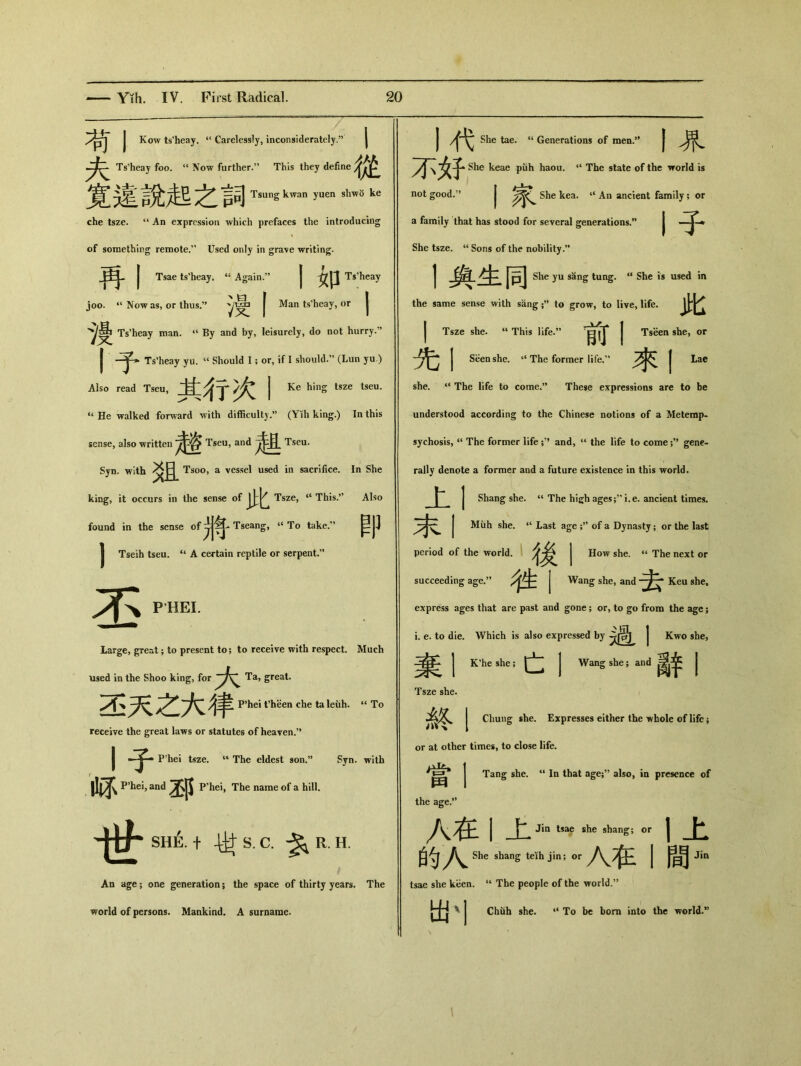 Yih. IV. First Radical. 20
苟｜ Kow ts'heay. “ Carelessly, inconsiderately.” ｜
夫 Ts'heay foo. “ Now further.” This they define 從
寛遠說起之詞 Tsung kwan yuen shwŏ ke
che tsze. “ An expression which prefaces the introducing
of something remote.” Used only in grave writing.
再｜ Tsae ts'heay. “ Again.” ｜如 Ts'heay
joo. “ Now as, or thus.” 漫｜ Man ts'heay, or ｜
漫 Ts'heay man. “ By and by, leisurely, do not hurry.”
｜予 Ts'heay yu. “ Should I; or, if I should.” (Lun yu.)
Also read Tseu, 其行次｜ Ke hing tsze tseu.
“ He walked forward with difficulty.” (Yih king.) In this
sense, also written 趦 Tseu, and 趄 Tseu.
Syn. with Tsoo, a vessel used in sacrifice. In She
king, it occurs in the sense of 此 Tsze, “ This.” Also
found in the sense of 將 Tseang, “ To take.” 即
｜ Tseih tseu. “ A certain reptile or serpent.”
丕 P'HEI.
Large, great; to present to; to receive with respect. Much
used in the Shoo king, for 大 Ta, great.
丕天之大律 P'hei t'hëen che ta leŭh. “ To
receive the great laws or statutes of heaven.”
｜子 P'hei tsze. “ The eldest son.” Syn. with
P'hei, and 邳 P'hei, The name of a hill.
世 SHÉ. † S. C. R. H.
An age; one generation; the space of thirty years. The
world of persons. Mankind. A surname.
｜代 She tae. “ Generations of men.” ｜界
不好 She keae pŭh haou. “ The state of the world is
not good.” ｜家 She kea. “ An ancient family; or
a family that has stood for several generations.” ｜子
She tsze. “ Sons of the nobility.”
｜與生同 She yu săng tung. “ She is used in
the same sense with săng;” to grow, to live, life. 此
｜ Tsze she. “ This life.” 前｜ Tsëen she, or
先｜ Sëen she. “ The former life.” 來｜ Lae
she. “ The life to come.” These expressions are to be
understood according to the Chinese notions of a Metemp-
sychosis, “ The former life;” and, “ the life to come;” gene-
rally denote a former and a future existence in this world.
上｜ Shang she. “ The high ages;” i. e. ancient times.
末｜ Mŭh she. “ Last age;” of a Dynasty; or the last
period of the world. 後｜ How she. “ The next or
succeeding age.” 徃｜ Wang she, and 去 Keu she,
express ages that are past and gone; or, to go from the age;
i. e. to die. Which is also expressed by 過｜ Kwo she,
棄｜ K'he she; 亡｜ Wang she; and 辭｜
Tsze she.
終｜ Chung she. Expresses either the whole of life;
or at other times, to close life.
當｜ Tang she. “ In that age;” also, in presence of
the age.”
人在｜上 Jin tsae she shang; or ｜上
的人 She shang teĭh jin; or 人在｜間 Jin
tsae she këen. “ The people of the world.”
出｜ Chŭh she. “ To be born into the world.”